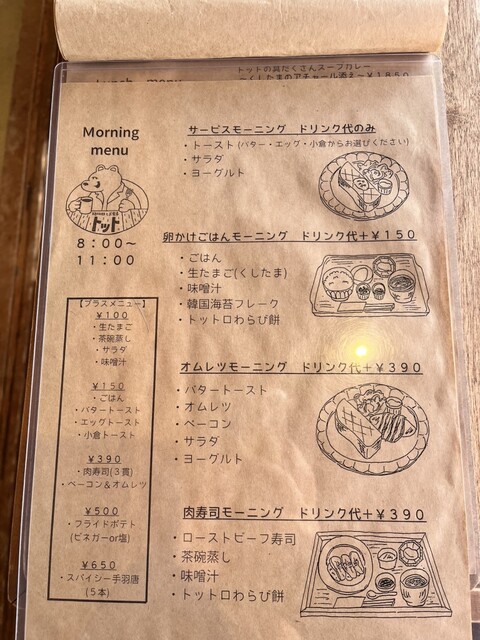 Lunch menu
トットの具だくさんスープカレー
～くしたまのアチャール添え～￥1850
Morning
menu
トット
8：00～
11：00
【プラスメニュー】
￥100
・生たまご
・茶碗蒸し
・サラダ
・味噌汁
￥150
・ごはん
・バタートースト
・エッグトースト
・小倉トースト
￥390
・肉寿司(３貫)
・ベーコン＆オムレツ
￥500
・フライドポテト
(ビネガーor塩)
￥650
・スパイシー手羽唐
(５本)
サービスモーニング　ドリンク代のみ
・トースト(バター・エッグ・小倉からお選びください)
・サラダ
・ヨーグルト
卵かけごはんモーニング　ドリンク代＋￥150
・ごはん
・生たまご(くしたま)
・味噌汁
・韓国海苔フレーク
・トットロわらび餅
オムレツモーニング　ドリンク代＋￥390
・バタートースト
・オムレツ
・ベーコン
・サラダ
・ヨーグルト
肉寿司モーニング　ドリンク代＋￥390
・ローストビーフ寿司
・茶碗蒸し
・味噌汁
・トットロわらび餅